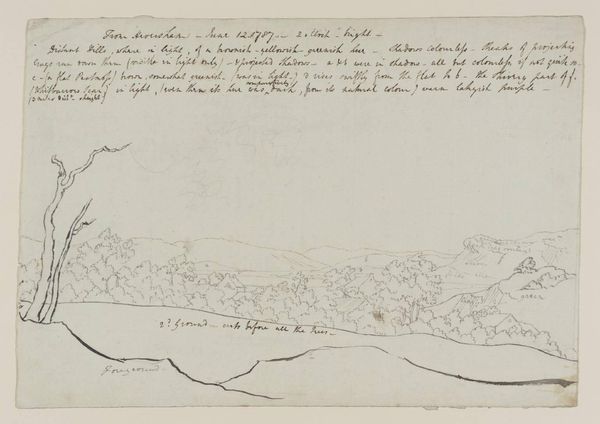 From Heversham - June 12. 1787 - 2 o'clock - bright -
Distant Hills, where in light, of a brownish - yellowish - greenish hue - shadows colourless - Streaks of projecting
Crags run down them (visible in light only) - & projected shadows - a & b were in shadow - all but colourless if not quite so
c - (a flat Peatmoss) brown, somewhat greenish. (was in light.) d rises softly from the flat to b - the shining part of f.
(Whitbarrow Scar) in light, (even then its hue was comparatively dark, from its natural colour) warm lakeish purple -
(3 miles dist.
2d Ground - cuts before all the trees -
Foreground -
green